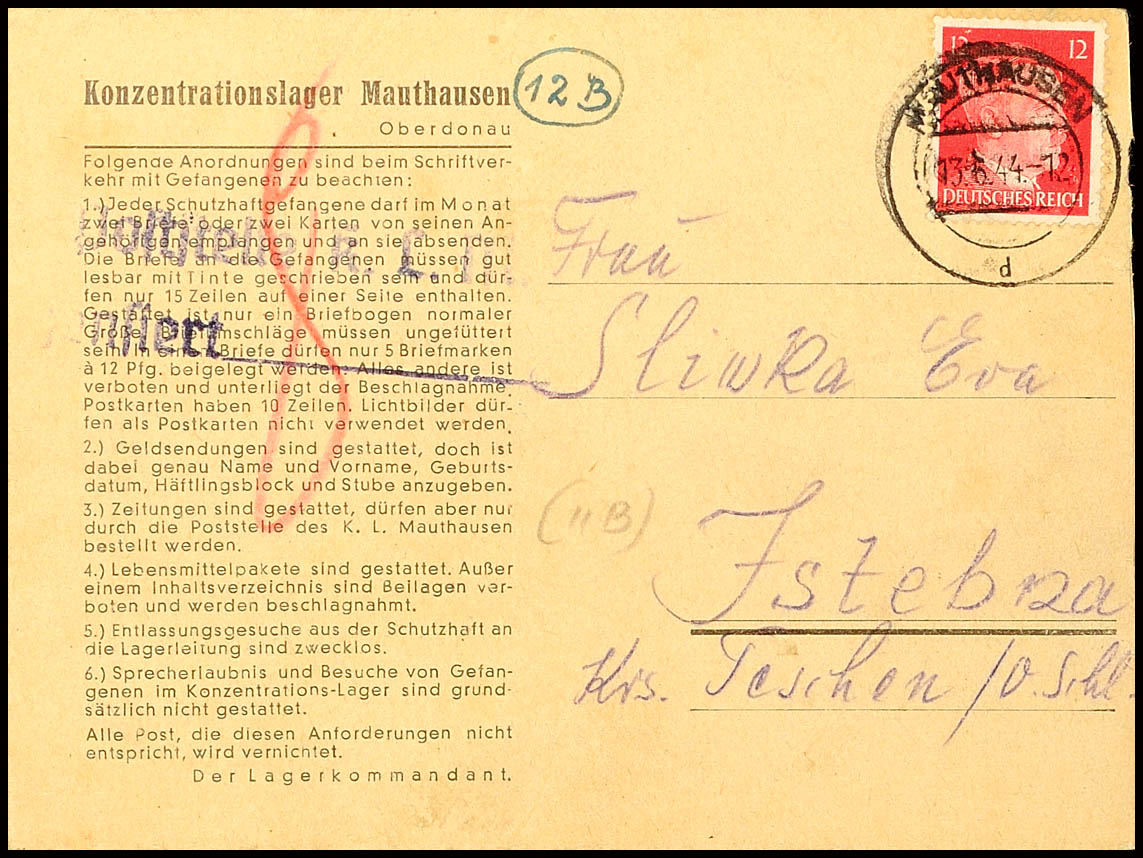 Konzentrationslager Mauthausen
Oberdonau
12 B
Folgende Anordnungen sind beim Schriftver-
kehr mit Gefangenen zu beachten:
1.) Jeder Schutzhaftgefangene darf im Monat
zwei Briefe oder zwei Karten von seinen An-
gehörigen empfangen und an sie absenden.
Die Briefe an die Gefangenen müssen gut
lesbar mit Tinte geschrieben sein und dür-
fen nur 15 Zeilen auf einer Seite enthalten.
Gestattet ist nur ein Briefbogen normaler
Größe. Briefumschläge müssen ungefüttert
sein. In einem Briefe dürfen nur 5 Briefmarken
à 12 Pfg. beigelegt werden. Alles andere ist
verboten und unterliegt der Beschlagnahme.
Postkarten haben 10 Zeilen. Lichtbilder dür-
fen als Postkarten nicht verwendet werden.
2.) Geldsendungen sind gestattet, doch ist
dabei genau Name und Vorname, Geburts-
datum, Häftlingsblock und Stube anzugeben.
3.) Zeitungen sind gestattet, dürfen aber nur
durch die Poststelle des K. L. Mauthausen
bestellt werden.
4.) Lebensmittelpakete sind gestattet. Außer
einem Inhaltsverzeichnis sind Beilagen ver-
boten und werden beschlagnahmt.
5.) Entlassungsgesuche aus der Schutzhaft an
die Lagerleitung sind zwecklos.
6.) Sprecherlaubnis und Besuche von Gefan-
genen im Konzentrations-Lager sind grund-
sätzlich nicht gestattet.
Alle Post, die diesen Anforderungen nicht
entspricht, wird vernichtet.
Der Lagerkommandant.
12 12
DEUTSCHES REICH
MAUTHAUSEN
13.6.44.-12
d
Frau
Sliwka Eva
(11B)
Istebna
Krs. Teschen /O. Schl.